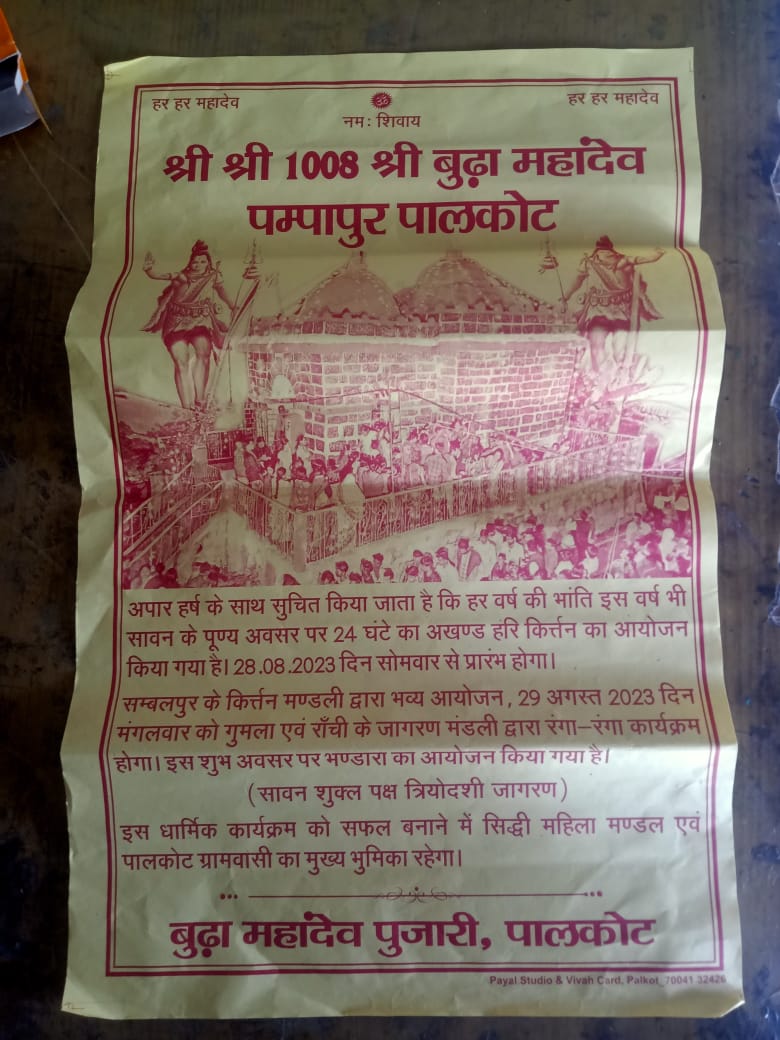 हर हर महादेव
ॐ
हर हर महादेव
नमः शिवाय
श्री श्री 1008 श्री बुढ़ा महांदेव
पम्पापुर पालकोट
अपार हर्ष के साथ सुचित किया जाता है कि हर वर्ष की भांति इस वर्ष भी
सावन के पूण्य अवसर पर 24 घंटे का अखण्ड हरि किर्त्तन का आयोजन
किया गया है। 28.08.2023 दिन सोमवार से प्रारंभ होगा।
सम्बलपुर के किर्त्तन मण्डली द्वारा भव्य आयोजन, 29 अगस्त 2023 दिन
मंगलवार को गुमला एवं राँची के जागरण मंडली द्वारा रंगा–रंगा कार्यक्रम
होगा। इस शुभ अवसर पर भण्डारा का आयोजन किया गया है।
(सावन शुक्ल पक्ष त्रियोदशी जागरण)
इस धार्मिक कार्यक्रम को सफल बनाने में सिद्धी महिला मण्डल एवं
पालकोट ग्रामवासी का मुख्य भुमिका रहेगा।
बुढ़ा महांदेव पुजारी, पालकोट
Payal Studio & Vivah Card, Palkot, 70041 32426